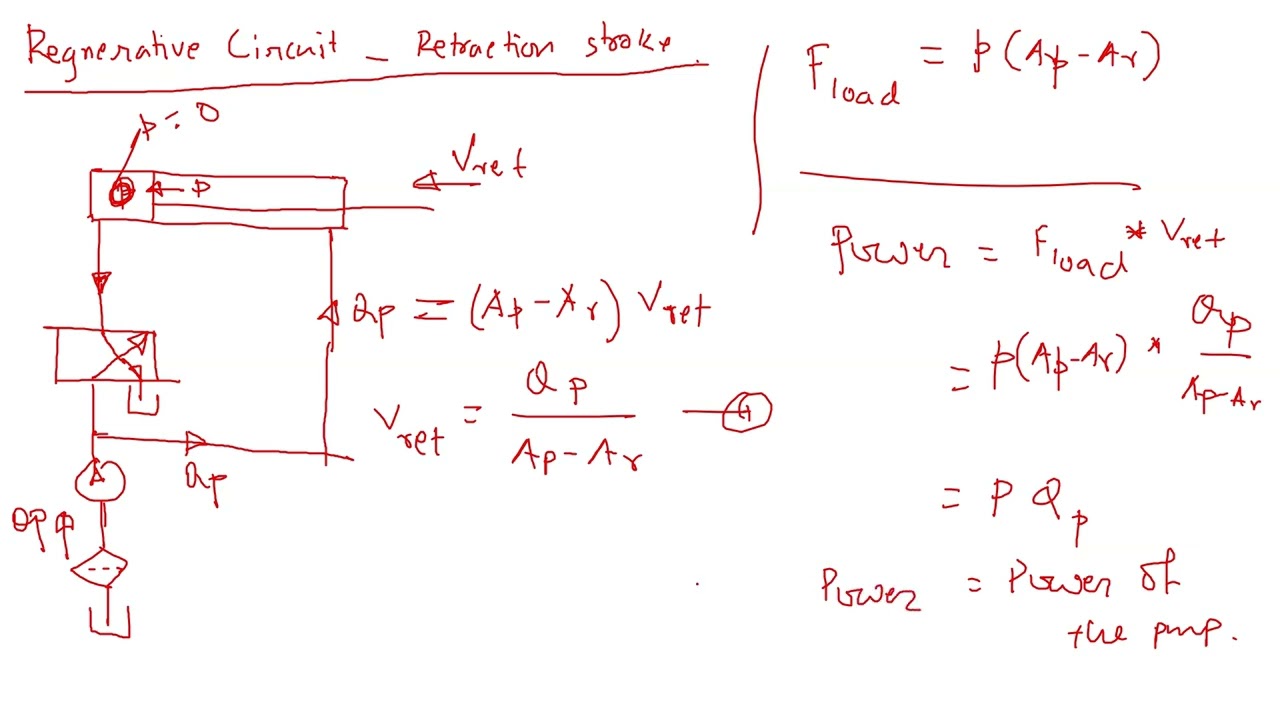 Regnerative Circuit - Retraction stroke.
p = 0
p
Vret
Qp = (Ap - Ar) Vret
Vret = Qp / (Ap - Ar) — 4
Qp
Qp p
Fload = p(Ap - Ar)
Power = Fload * Vret
= p(Ap - Ar) * Qp / (Ap - Ar)
= p Qp
Power = Power of
the pump.